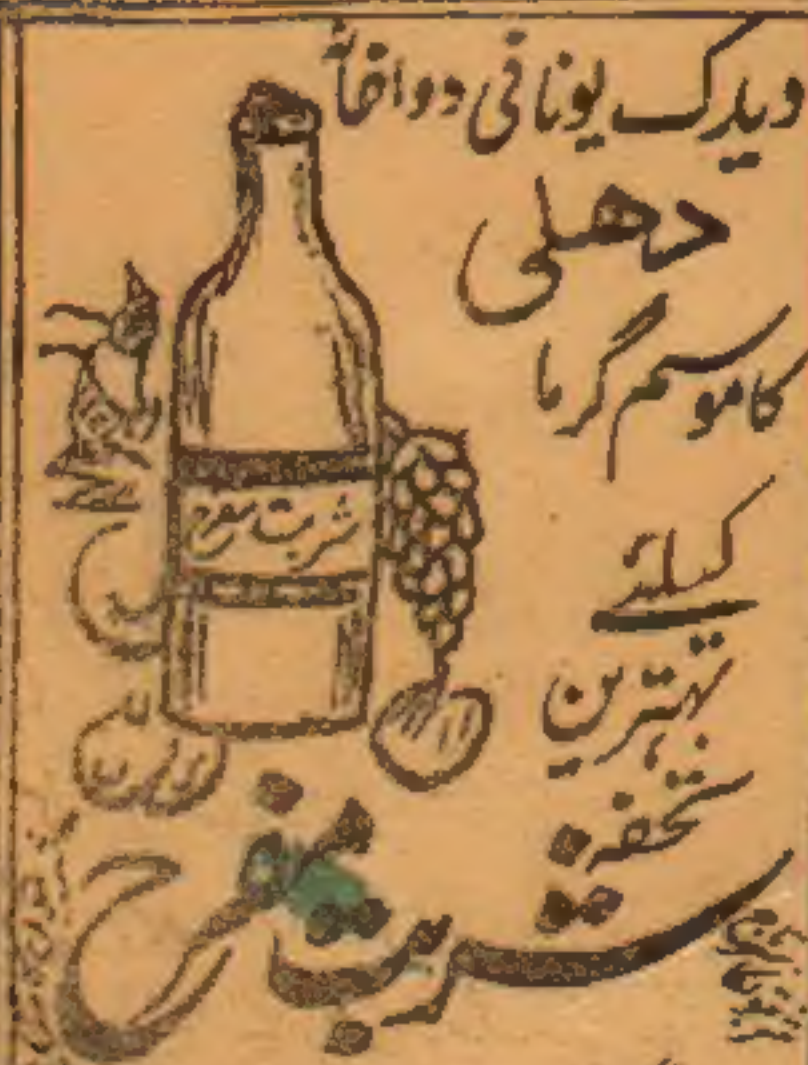 ویدک یونانی دواخانہ
دھلی
کا موسم گرما
کیلئے
بہترین
تحفہ
شربت مفرح
شربت مفرح